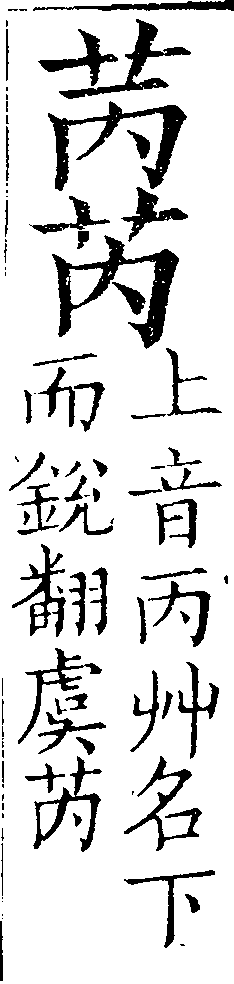 苪芮
上音丙艸名下
而銳翻虞芮